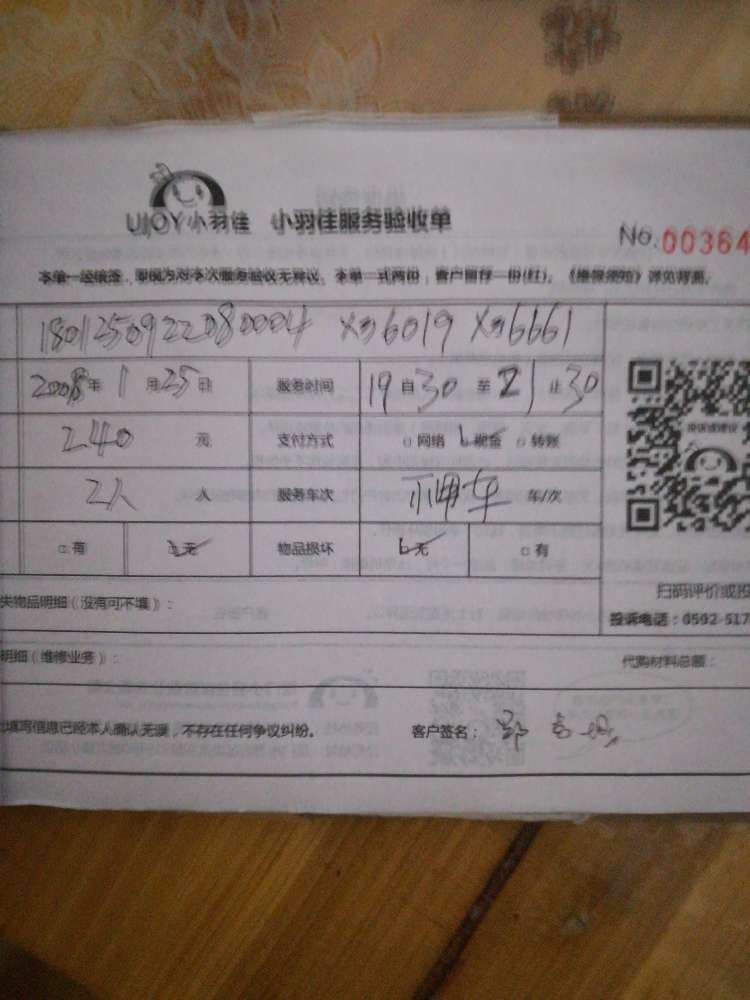 UJOY小羽佳 小羽佳服务验收单
No.00364
本单一经填签，即视为对本次服务验收无异议。本单一式两份，客户留存一份(红)。《维保须知》详见背面。
1801250922080004 X母6019 X母6661
2008年1月25日 服务时间 19自30至21止30
240元 支付方式 网络 现金 转账
2人人 服务车次 车/次
有 无 物品损坏 无 有
扫码评价或投
失物品明细(没有可不填)：
投诉电话：0592-517
明细(维修业务)：
代购材料总额：
填写信息已经本人确认无误，不存在任何争议纠纷。 客户签名：